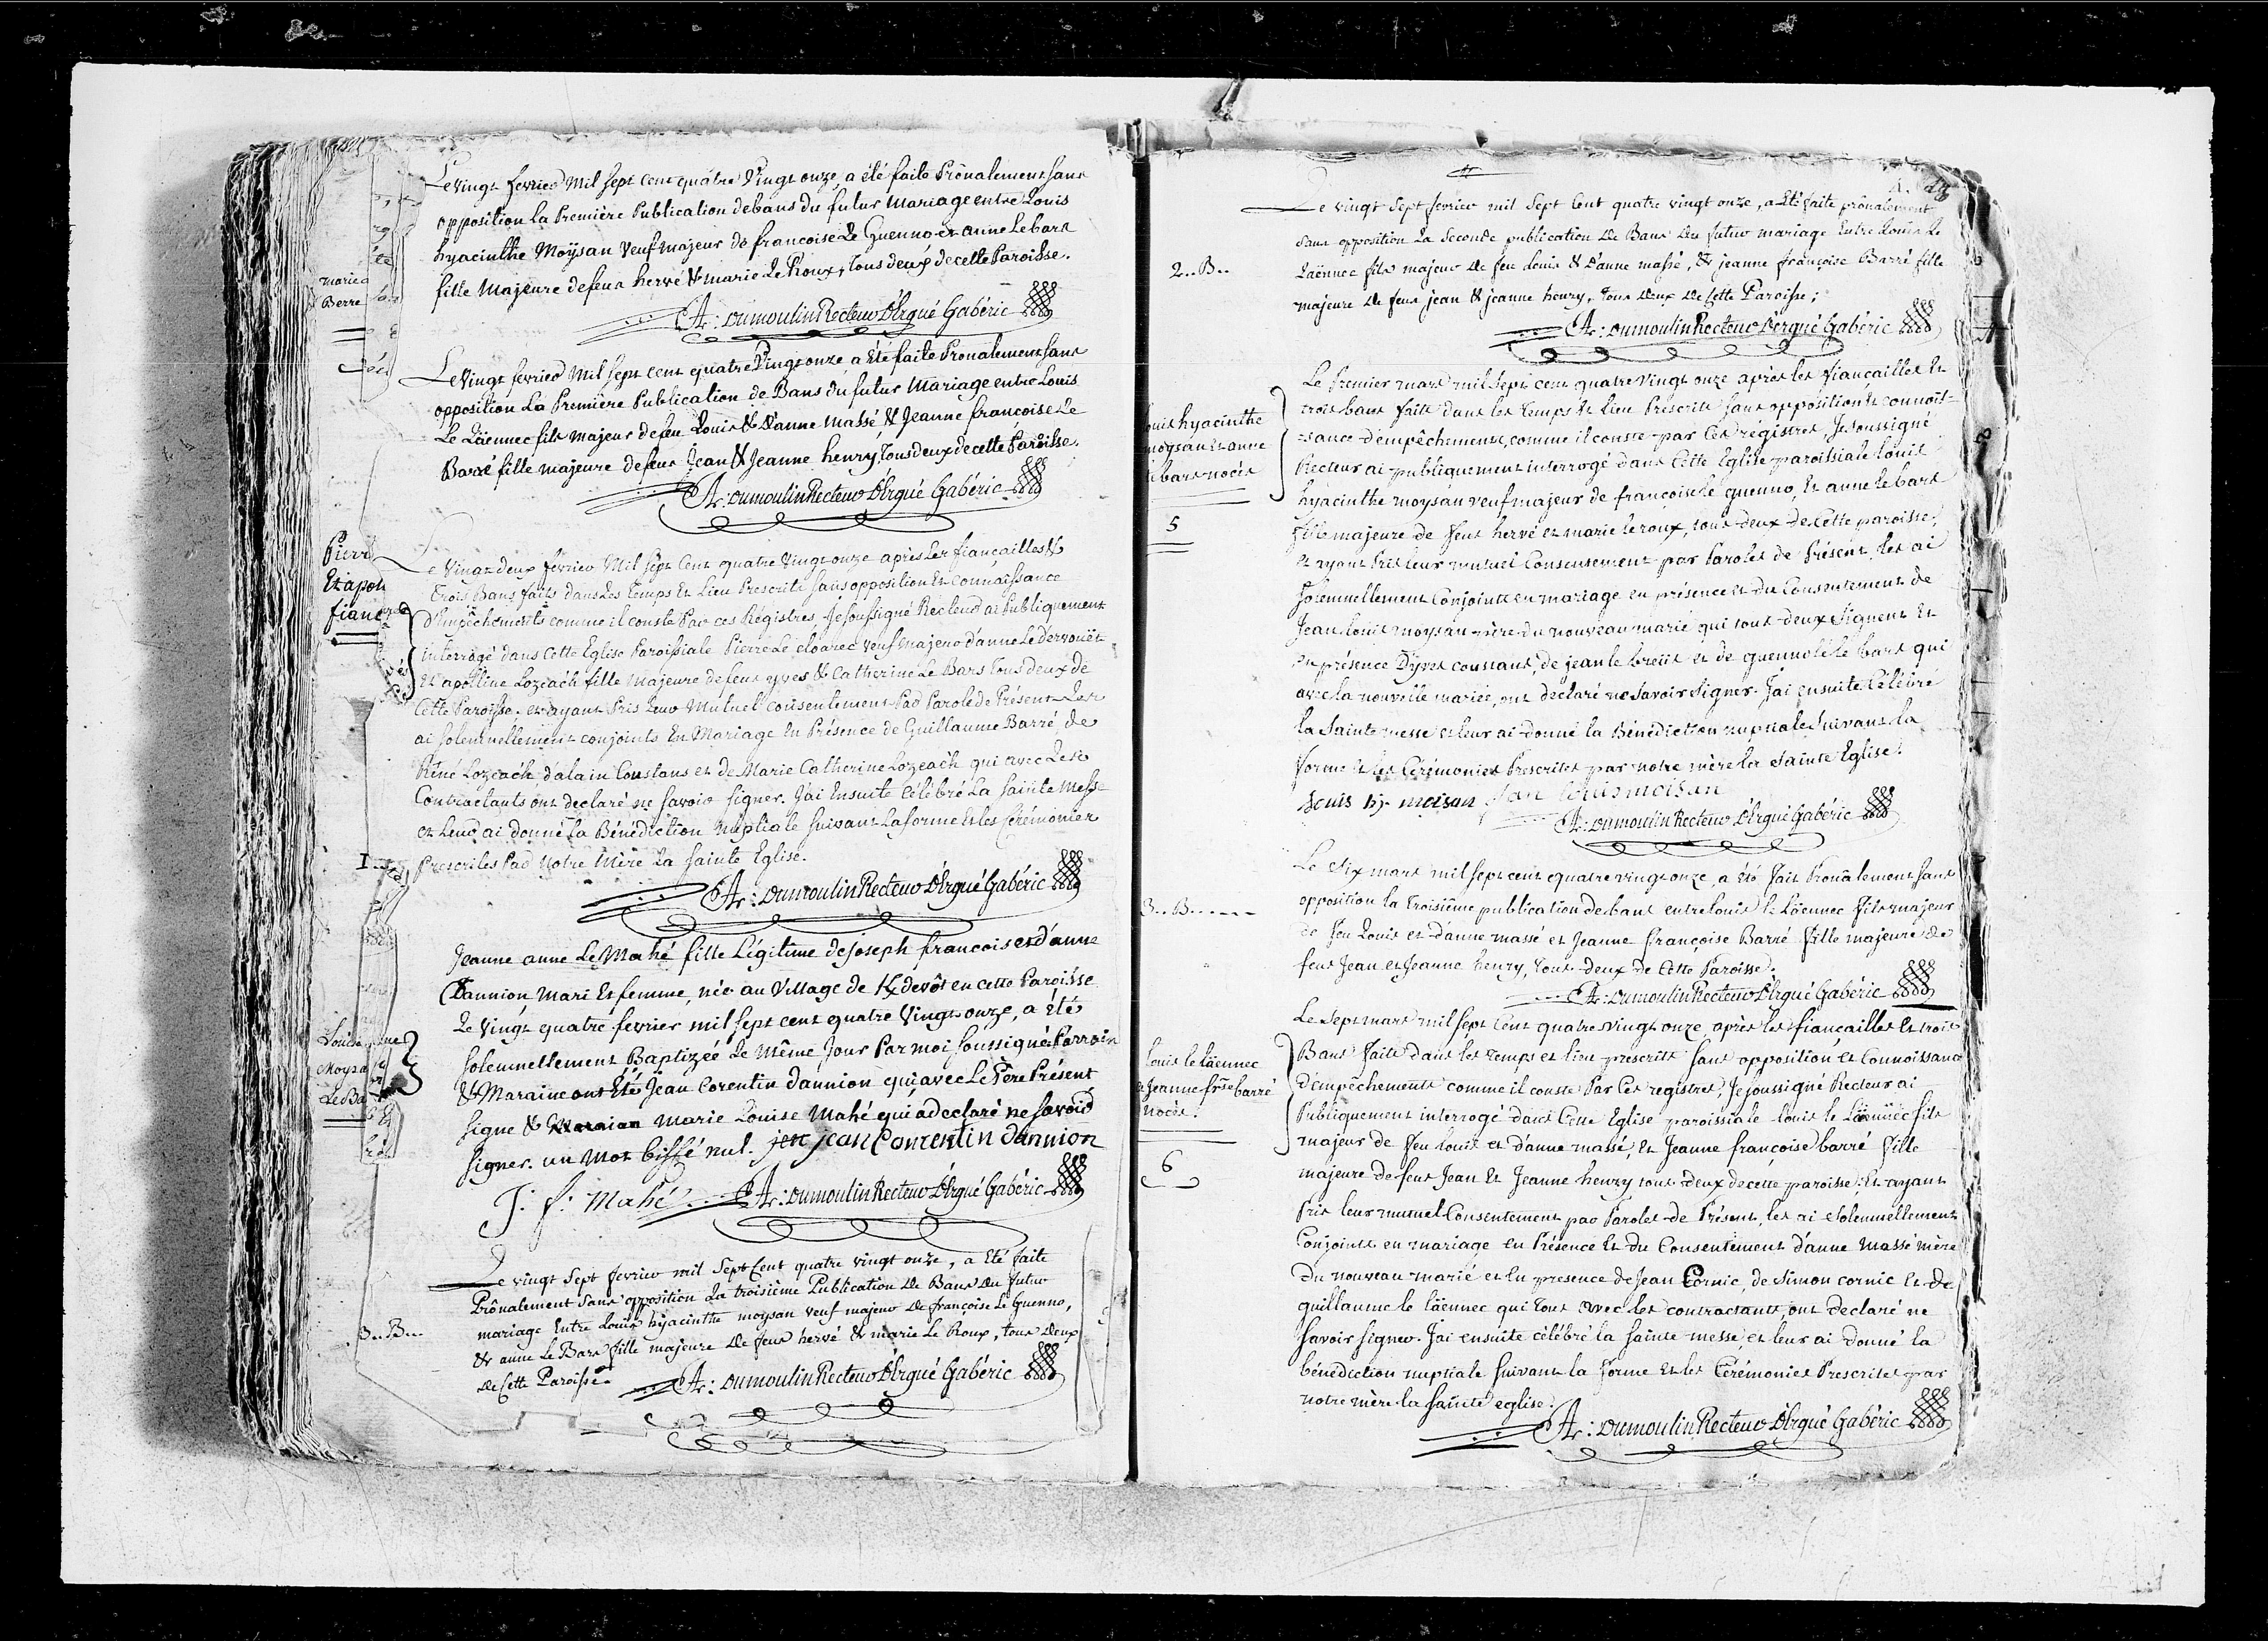 Le vingt fevrier mil sept cent quatre vingt onze, a été faite Prônalement sans
opposition La Première Publication de bans du futur Mariage entre Louis
hyacinthe Moysan Veuf majeur de francoise Le Guenno et anne Le bars
fille Majeure de feus hervé & marie Le Roux, tous deux de cette Paroisse.
A: Dumoulin Recteur D'Ergué Gabéric
Le vingt fevrier Mil sept cent quatre Vingt onze, a Eté faite Pronalement sans
opposition La Premiere Publication de Bans du futur Mariage entre Louis
Le Läennec fils majeur de feu Louis & D'anne Massé & Jeanne francoise Le
Barré fille majeure de feus Jean & Jeanne henry, Tous deux de cette Paroisse.
A: Dumoulin Recteur D'Ergué Gabéric
Pierre
Et apol
fiancés
Le Vingt deux fevrier Mil sept Cent quatre Vingt onze après Les fiançailles &
Trois Bans faits dans Les Temps Et Lieu Prescrits sans opposition Et Connaissance
D'Empêchements comme il conste Par ces Régistres, Je soussigné Recteur ai Publiquement
interrogé dans Cette Eglise Paroissiale Pierre Le cloarec Veuf Majeur d'anne Le dervouët
Et apolline Lozeach fille Majeure de feus yves & Catherine Le Bars tous deux de
Cette Paroisse. et ayant Pris Leur Mutuel consentement Par Parole de Présent Les
ai solennellement conjoints En Mariage En Présence de Guillaume Barré, de
Réné Lozeach d'alain Constans et de Marie Catherine Lozeach qui avec Les
Contractants ont declaré ne savoir signer. J'ai Ensuite Célébré La sainte Messe
et Leur ai donné La Bénédiction Nuptiale suivant La forme Et les Cérémonies
Prescrites Par Notre Mère La sainte Eglise.
A: Dumoulin Recteur D'Ergué Gabéric
Jeanne anne Le Mahé fille Légitime de Joseph francois et d'anne
Dannion Mari Et femme, née au Village de K/devôt en cette Paroisse
Le vingt quatre fevrier mil sept cent quatre Vingt onze, a été
solemnellement Baptizéé Le même Jour Par moi soussigné: Parrain
& Maraine ont Eté Jean Corentin Dannion qui avec Le Père Présent
signe & Marie Louise Mahé qui a declaré ne savoir
signer. un mot biffé nul. jean Corentin dannion
J: f: Mahé A: Dumoulin Recteur D'Ergué Gabéric
3..B...
Le vingt Sept fevrier mil Sept Cent quatre vingt onze, a Eté faite
Prônalement Sans opposition La troisième Publication de Bans du futur
mariage Entre Louis hyacinthe moysan veuf majeur de françoise Le Guenno,
& anne Le Bars fille majeure de feus hervé & marie Le Roux, tous deux
de Cette Paroisse.
A: Dumoulin Recteur D'Ergué Gabéric
2..B..
Le vingt Sept fevrier mil Sept Cent quatre vingt onze, a Eté faite prônalement
sans opposition La Seconde publication de Bans du futur mariage Entre Louis Le
Laënnec fils majeur de feu Louis & D'anne massé, & jeanne françoise Barré fille
majeure de feus jean & jeanne henry, Tous deux de Cette Paroisse;
A: Dumoulin Recteur D'Ergué Gabéric
Louis hyacinthe
moysan et anne
le bars nocés
5
Le Premier mars mil sept cent quatre vingt onze après les fiançailles Et
trois bans faits dans les temps Et Lieu Prescrits sans opposition Et connois-
-sance d'empêchements, comme il conste par Ces régistres, Je soussigné
Recteur ai publiquement interrogé dans Cette Eglise paroissiale Louis
hyacinthe moysan veuf majeur de françoise le guenno, Et anne le bars
fille majeure de feus hervé et marie le roux, tous deux de Cette paroisse;
et ayant Pris leur mutuel Consentement par Paroles de Présent, les ai
solemnellement Conjoints en mariage en présence et du Consentement de
Jean louis moysan père du nouveau marié qui tous deux Signent Et
en présence D'yves constans, de jean le breüt et de guennolé le bars qui
avec la nouvelle mariée, ont declaré ne savoir signer. J'ai ensuite Célébré
la Sainte messe et leur ai donné la Bénédiction nuptiale Suivant la
forme Et les Cérémonies Prescrites par notre mère la Sainte Eglise.
Louis hy. moisan Jan Louis moisan
A: Dumoulin Recteur D'Ergué Gabéric
3..B......
Le Six mars mil sept cent quatre vingt onze, a été fait Pronalement sans
opposition la Troisième publication de bans entre louis le Läennec fils majeur
de feu Louis et d'anne massé et Jeanne françoise Barré fille majeure de
feus Jean et Jeanne henry, tous deux de Cette Paroisse.
A: Dumoulin Recteur D'Ergué Gabéric
Louis le läennec
& Jeanne frse barré
nocés.
6
Le sept mars mil sept Cent quatre vingt onze, après les fiançailles Et trois
Bans faits dans les temps et lieu prescrits sans opposition, et Connoissance
d'empêchements comme il conste Par Ces registres, Je soussigné Recteur ai
Publiquement interrogé dans Cette Eglise paroissiale Louis le Läennec fils
majeur de feu louis et d'anne massé, Et Jeanne françoise barré fille
majeure de feus Jean Et Jeanne henry tous deux de cette paroisse. Et ayant
Pris leur mutuel Consentement par Paroles de Présent, les ai Solemnellement
Conjoints en mariage en Présence Et du Consentement d'anne Massé mère
du nouveau marié et En presence de Jean Cornic, de Simon cornic Et de
guillaume le läennec qui Tous avec les contractants, ont declaré ne
savoir signer. J'ai ensuite célébré la sainte messe, et leur ai donné la
bénédiction nuptiale suivant la forme Et les Cérémonies Prescrites par
notre mère la sainte eglise.
A: Dumoulin Recteur D'Ergué Gabéric